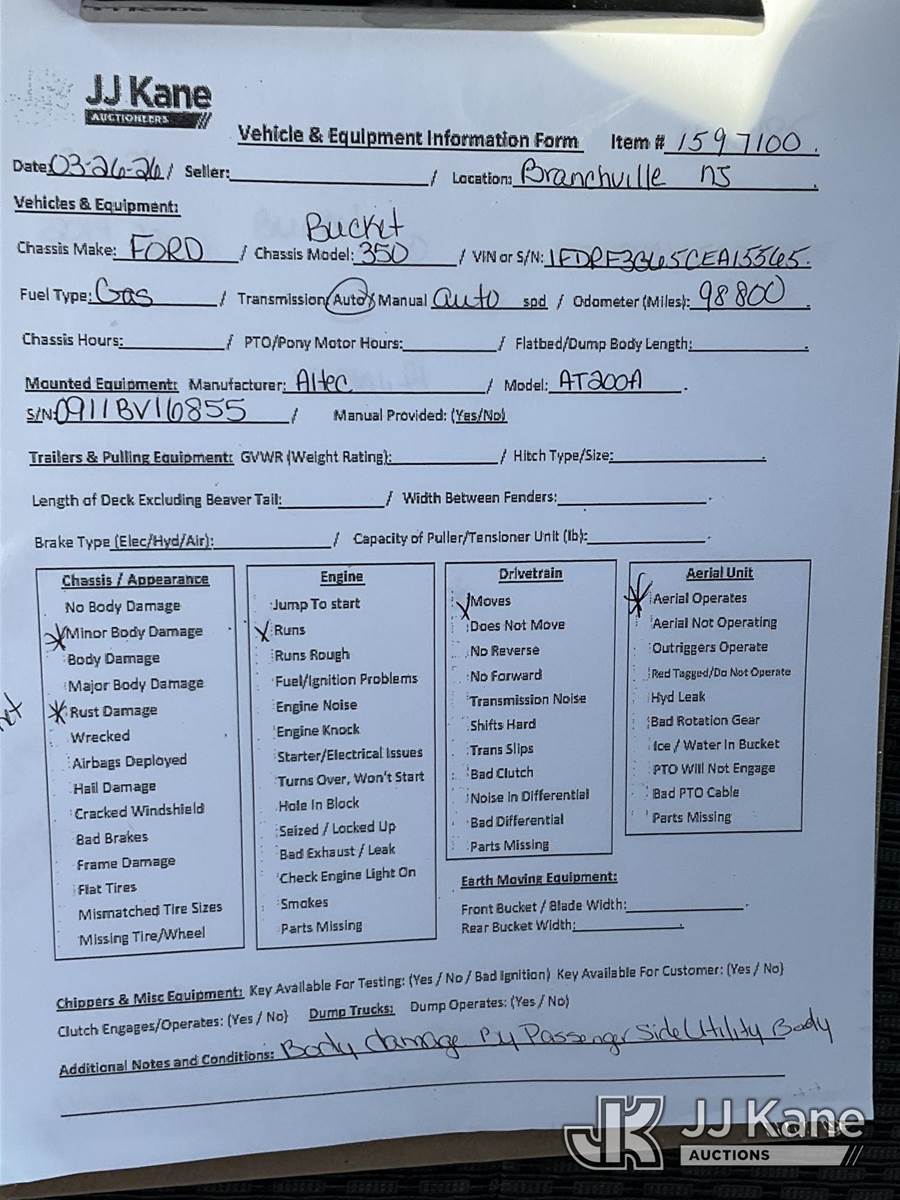 JJ Kane
AUCTIONEERS
Vehicle & Equipment Information Form Item # 1597100.
Date: 03-26-26 / Seller: / Location: Branchville NJ.
Vehicles & Equipment:
Bucket
Chassis Make: FORD / Chassis Model: 350 / VIN or S/N: 1FDRF3G65CEA15565.
Fuel Type: Gas / Transmission (Auto) Manual auto spd / Odometer (Miles): 98800.
Chassis Hours: / PTO/Pony Motor Hours: / Flatbed/Dump Body Length: .
Mounted Equipment: Manufacturer: Altec / Model: AT200A.
S/N: 0911BV16855 / Manual Provided: (Yes/No)
Trailers & Pulling Equipment: GVWR (Weight Rating): / Hitch Type/Size: .
Length of Deck Excluding Beaver Tail: / Width Between Fenders: .
Brake Type (Elec/Hyd/Air): / Capacity of Puller/Tensioner Unit (lb): .
Chassis / Appearance
No Body Damage
Minor Body Damage
Body Damage
Major Body Damage
Rust Damage
Wrecked
Airbags Deployed
Hail Damage
Cracked Windshield
Bad Brakes
Frame Damage
Flat Tires
Mismatched Tire Sizes
Missing Tire/Wheel
Engine
Jump To start
Runs
Runs Rough
Fuel/Ignition Problems
Engine Noise
Engine Knock
Starter/Electrical Issues
Turns Over, Won't Start
Hole In Block
Seized / Locked Up
Bad Exhaust / Leak
Check Engine Light On
Smokes
Parts Missing
Drivetrain
Moves
Does Not Move
No Reverse
No Forward
Transmission Noise
Shifts Hard
Trans Slips
Bad Clutch
Noise In Differential
Bad Differential
Parts Missing
Aerial Unit
Aerial Operates
Aerial Not Operating
Outriggers Operate
Red Tagged/Do Not Operate
Hyd Leak
Bad Rotation Gear
Ice / Water In Bucket
PTO Will Not Engage
Bad PTO Cable
Parts Missing
Earth Moving Equipment:
Front Bucket / Blade Width: .
Rear Bucket Width: .
Chippers & Misc Equipment: Key Available For Testing: (Yes / No / Bad Ignition) Key Available For Customer: (Yes / No)
Clutch Engages/Operates: (Yes / No) Dump Trucks: Dump Operates: (Yes / No)
Additional Notes and Conditions: Body damage By Passenger Side Utility Body
JJ Kane
AUCTIONS